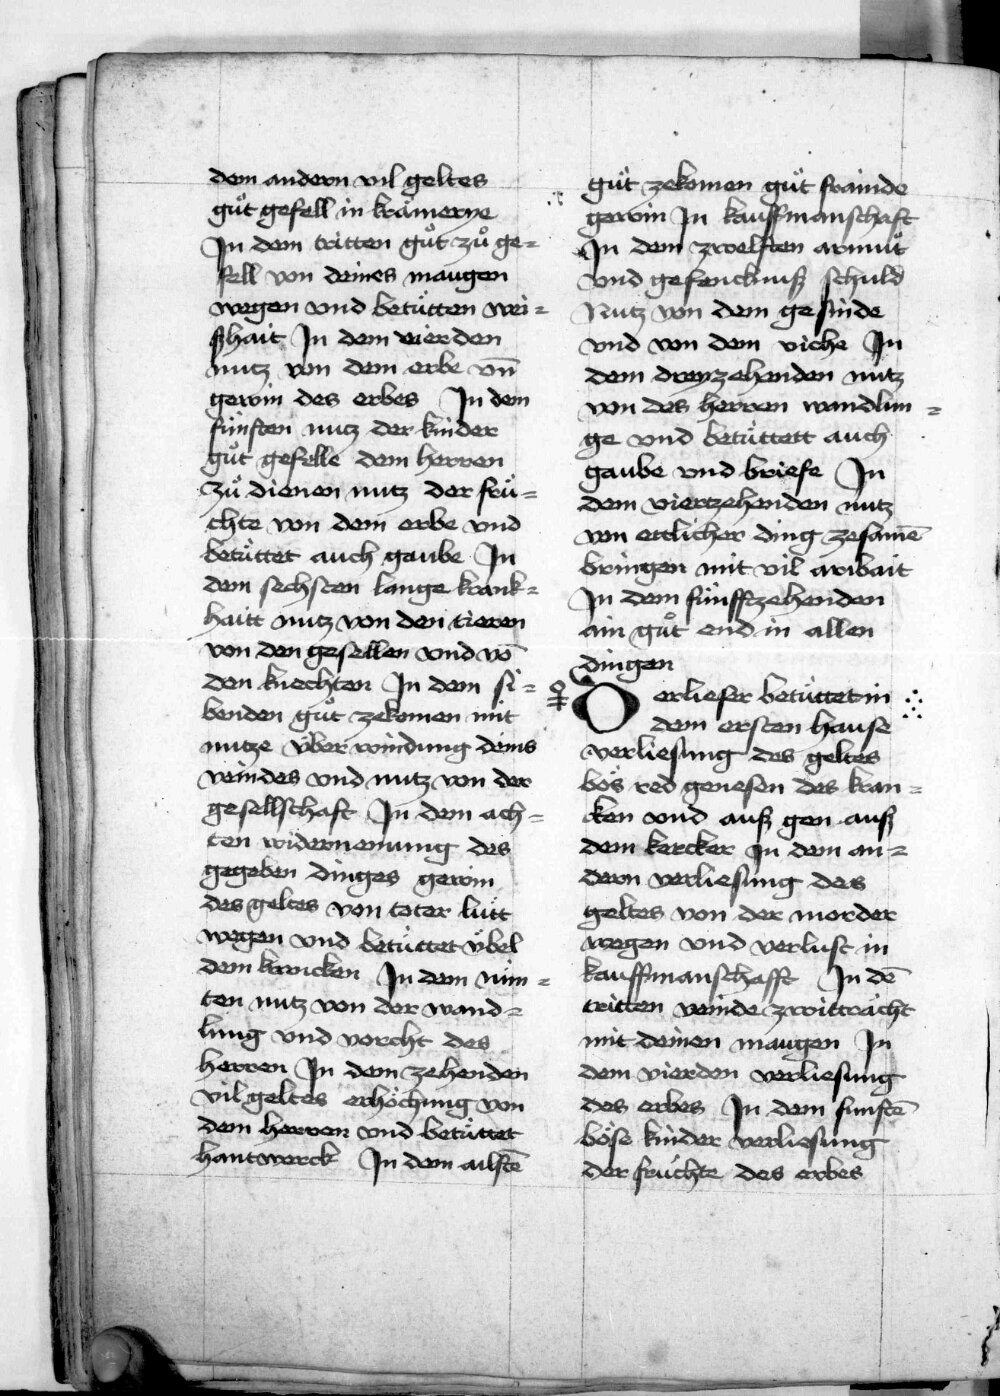 dem andern vil geltes
gůt gefell in krämerye
In dem tritten gůt zů ge=
fell von deines maugen
wegen vnd betütten wei=
ßhait In dem vierden
nutz von dem erbe vn̄
gewin des erbes In dem
fünften nutz der kinder
gůt gefelle dem herren
zů dienen nutz der frü=
chte von dem erbe vnd
betüttet auch gaube In
dem sechsten lange krank=
haitt nutz von den tieren
von den gesellen vnd vō
den knechten In dem si=
benden gůt zekomen mit
nutze über windung deins
veindes vnd nutz von der
gesellschaft In dem ach=
ten widernemung des
gegeben dinges gewin
des geltes von toter lütt
wegen vnd betüttet übel
dem krancken In dem nün=
ten nutz von der wand=
lung vnd vorcht des
herren In dem zehenden
vil geltes erhöchung von
dem herren vnd betüttet
hantwerck In dem ailftē
gůt zekomen gůt frainde
gewin In kauffmanschaft
In dem zwelften armůt
vnd gefencknuß schuld
Nutz von dem gesinde
vnd von dem viche In
dem dreyzehenden nutz
von des herren wandlun=
ge vnd betüttett auch
gaube vnd briefe In
dem viertzehenden nutz
von ettlicher ding zesamē
bringen mit vil aribait
In dem fünfftzehenden
ain gůt end in allen
dingen
Der lieser betüttet in
dem ersten hause
verliesung des geltes
bös red genesen des kran=
cken vnd auß gen auß
dem kercker In dem an=
dern verliesung des
geltes von der morder
wegen vnd verlust in
kauffmanschafft In dē
tritten veinde zwitträcht
mit deinen maugen In
dem vierden verliesung
des erbes In dem funftē
böse kinder verliesung
der früchte des erbes